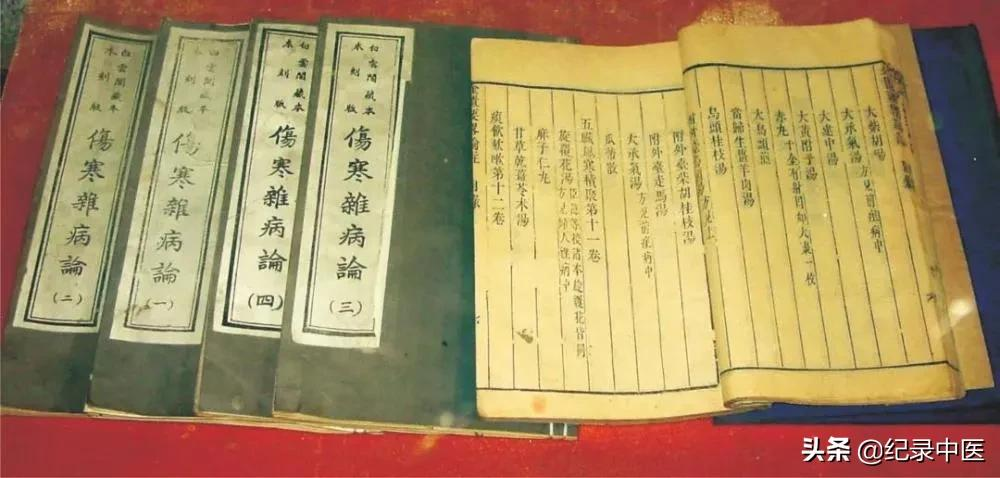 白雲閣藏本
木刻版
傷寒雜病論
(二)
白雲閣藏本
木刻版
傷寒雜病論
(一)
白雲閣藏本
木刻版
傷寒雜病論
(四)
白雲閣藏本
木刻版
傷寒雜病論
(三)
大柴胡湯
大承氣湯方見前痙病中
大建中湯
大黃附子湯
赤丸
大烏頭煎
當歸生薑羊肉湯
烏頭桂枝湯
附外臺柴胡桂枝湯
附外臺走馬湯
大承氣湯方見前痙病中
瓜蒂散
五臟風寒積聚第十一卷
旋覆花湯方見婦人雜病中
麻子仁丸
甘草乾薑苓朮湯
痰飲欬嗽第十二卷
头条 @纪录中医